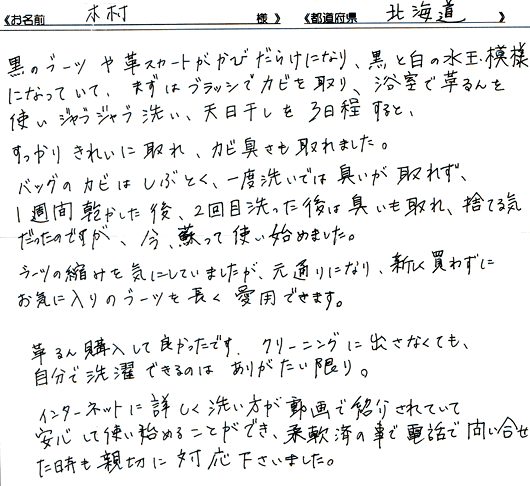 《お名前 木村 様》 《都道府県 北海道 》
黒のブーツや革スカートがかびだらけになり、黒と白の水玉模様
になっていて、まずはブラッシでカビを取り、浴室で革るんを
使いジャブジャブ洗い、天日干しを3日程すると、
すっかりきれいに取れ、カビ臭さも取れました。
バッグのカビはしぶとく、一度洗いでは臭いが取れず、
1週間乾かした後、2回目洗った後は臭いも取れ、捨てる気
だったのですが、今、蘇って使い始めました。
ブーツの縮みを気にしていましたが、元通りになり、新しく買わずに
お気に入りのブーツを長く愛用できます。
革るん購入して良かったです。クリーニングに出さなくても、
自分で洗濯できるのはありがたい限り。
インターネットに詳しく洗い方が動画で紹介されていて
安心して使い始めることができ、柔軟済の事で電話で問い合せ
た時も親切に対応下さいました。